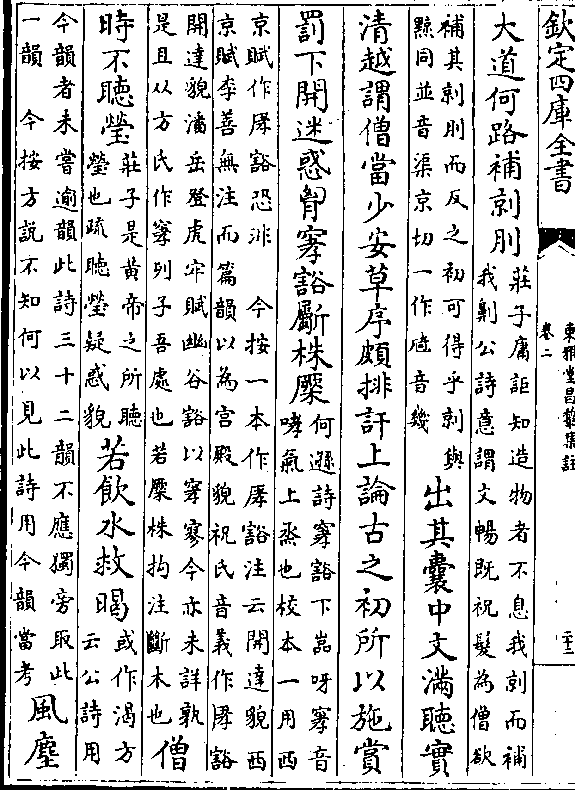 欽定四庫全書
東雅堂昌黎集註
卷二
二十二
大道何路補剠刖
莊子庸詎知造物者不息我剠而補
我劓公詩意謂文暢既祝髮為僧欲
補其剠刖而反之初可得乎剠與
黥同並音渠京切一作磑音幾
出其囊中文滿聽實
清越謂僧當少安草序頗排訐上論古之初所以施賞
罰下開迷惑胷窙豁斸株橜
何遜詩窙豁下嵓呀窙音
哮氣上烝也校本一用西
京賦作庨豁恐非 今按一本作庨豁注云開達貌西
京賦李善無注而篇韻以為宮殿貌祝氏音義作庨豁
開達貌潘岳登虎牢賦幽谷豁以窙寥今亦未詳孰
是且从方氏作窙列子吾處也若橜株拘注斷木也
僧
時不聽瑩
莊子是黄帝之所聽
瑩也疏聽瑩疑惑貌
若飲水救暍
或作渴方
云公詩用
今韻者未嘗逾韻此詩三十二韻不應獨旁取此
一韻 今按方說不知何以見此詩用今韻當考
風塵